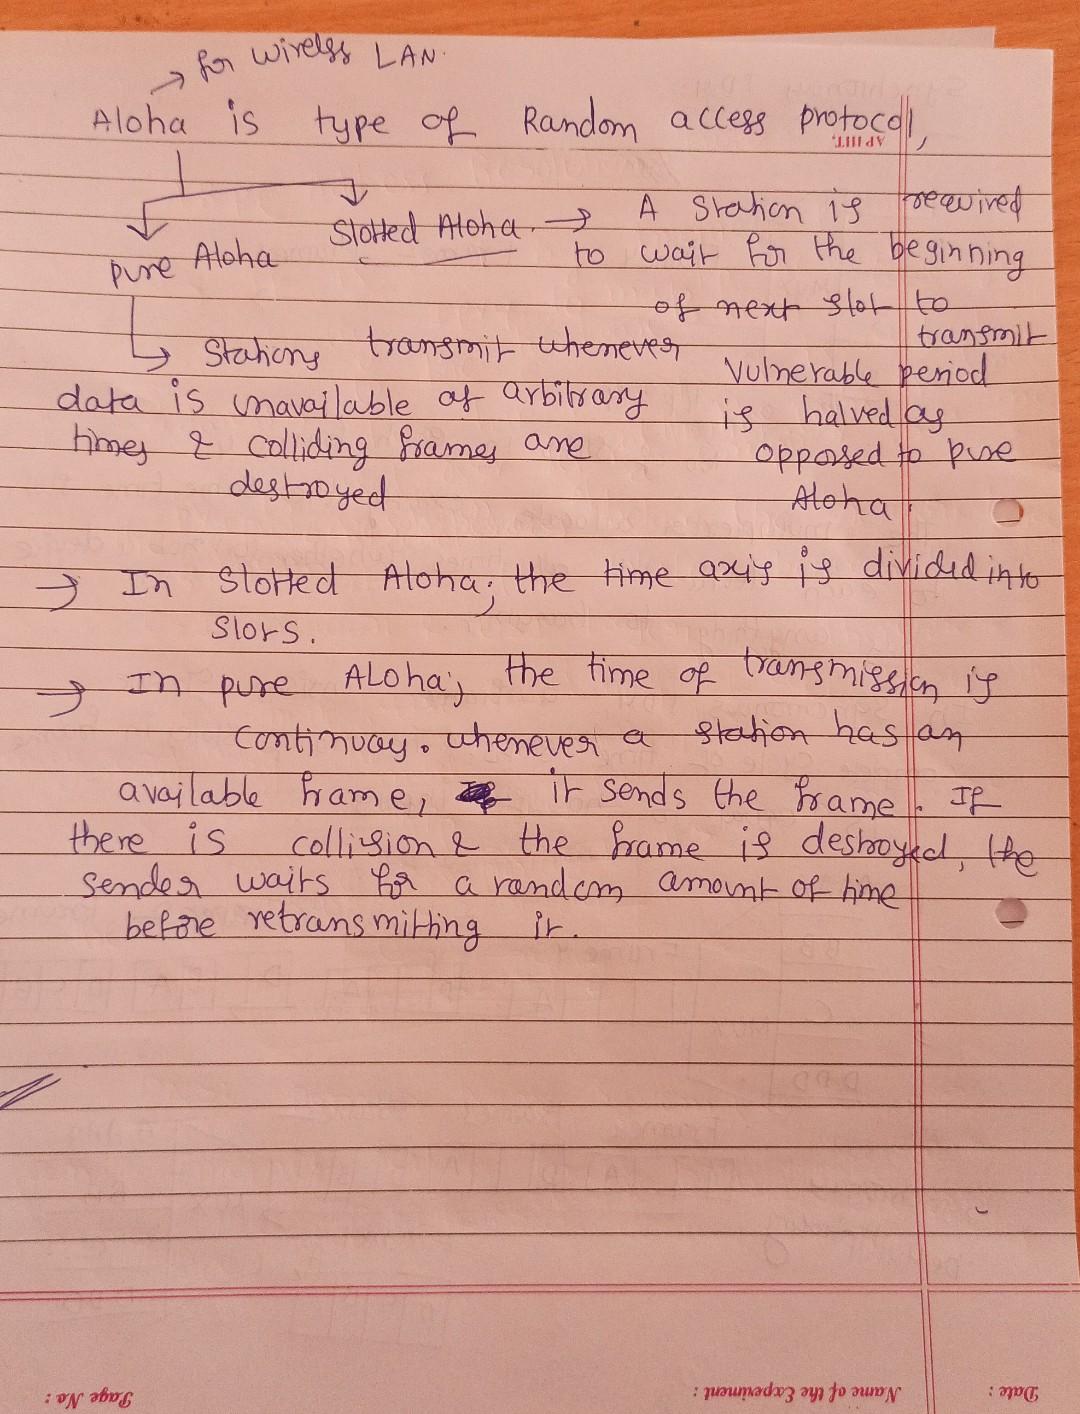 for wireless LAN.
Aloha is type of Random access protocol,
AP IIIT,
Slotted Aloha. → A Station is required
to wait for the beginning
of next slot to
transmit
Vulnerable period
is halved as
opposed to pure
Aloha.
pure Aloha
Stations transmit whenever
data is unavailable at arbitrary
times & colliding frames are
destroyed
→ In Slotted Aloha; the time axis is divided into
slots.
→ In pure ALoha; the time of transmission is
continuoy. whenever a station has an
available frame, it sends the frame. If
there is collision & the frame is destroyed, the
sender waits for a random amount of time
before retransmitting it.
Date :
Name of the Experiment :
Page No :